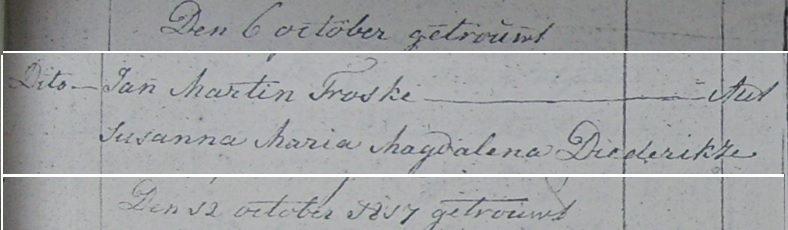 Den 6 october getrouwt
Dito — Jan Martin Troske — Met
Susanna Maria Magdalena Diederikze
Den 12 october 1817 getrouwt